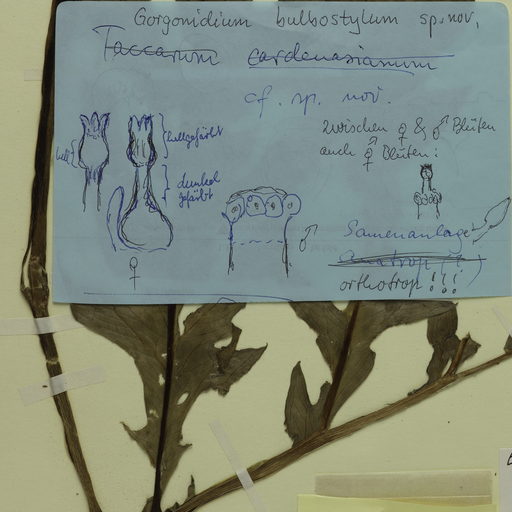 Gorgonidium bulbostylum sp. nov.
Taccarum cardenasianum
cf. sp. nov.
zwischen ♀ & ♂ Blüten
auch ⚥ Blüten:
hell
hellgefärbt
dunkel
gefärbt
♂
Samenanlage
orthotrop!!!
♀